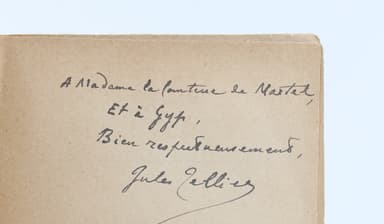 A Madame la Comtesse de Martel,
Et à Gyp,
Bien respectueusement,
Jules Tellier